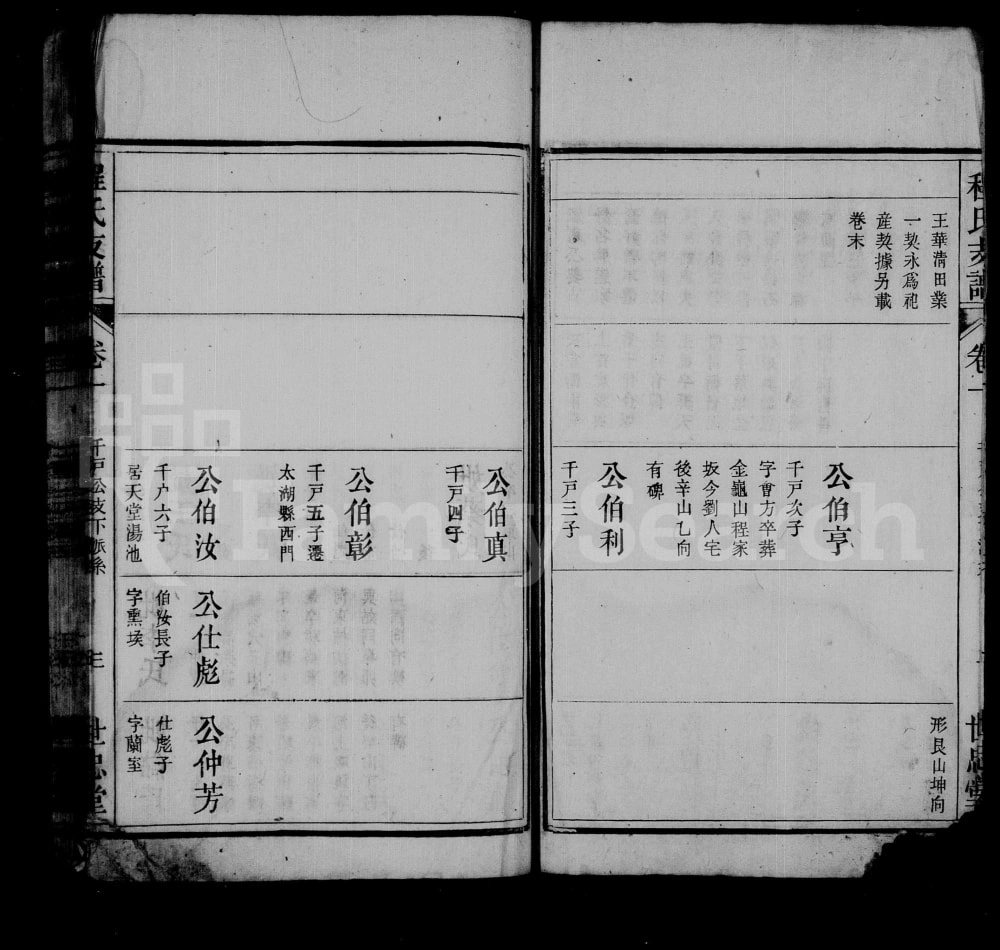 程氏支譜
卷一
世忠堂
王華清田業
一契永爲祀
産契據另載
卷末
公伯亨
千戸次子
字會方卒葬
金龜山程家
坂今劉人宅
後辛山乙向
有碑
公伯利
千戸三子
形艮山坤向
公伯真
千戸四子
公伯彰
千戸五子遷
太湖縣西門
公伯汝
千户六子
居天堂湯池
公仕彪
伯汝長子
字熏堠
公仲芳
仕彪子
字蘭室
程氏支譜
卷一
千戸公支下派系
三
世忠堂
FamilySearch